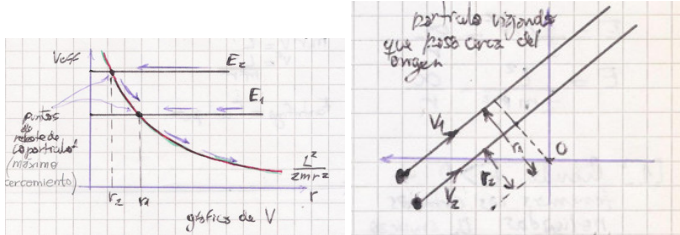 Veff
E2
E1
puntos
de
rebote de
la partícula
(máximo
acercamiento)
r2
r1
r
L²
2mr²
gráfico de V
partícula viajando
que pasa cerca del
origen
V1
r1
O
r2
V2